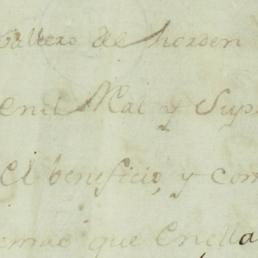 ballero del horden
Enel Rl y Sup
El beneficio, y com
emas que Enella